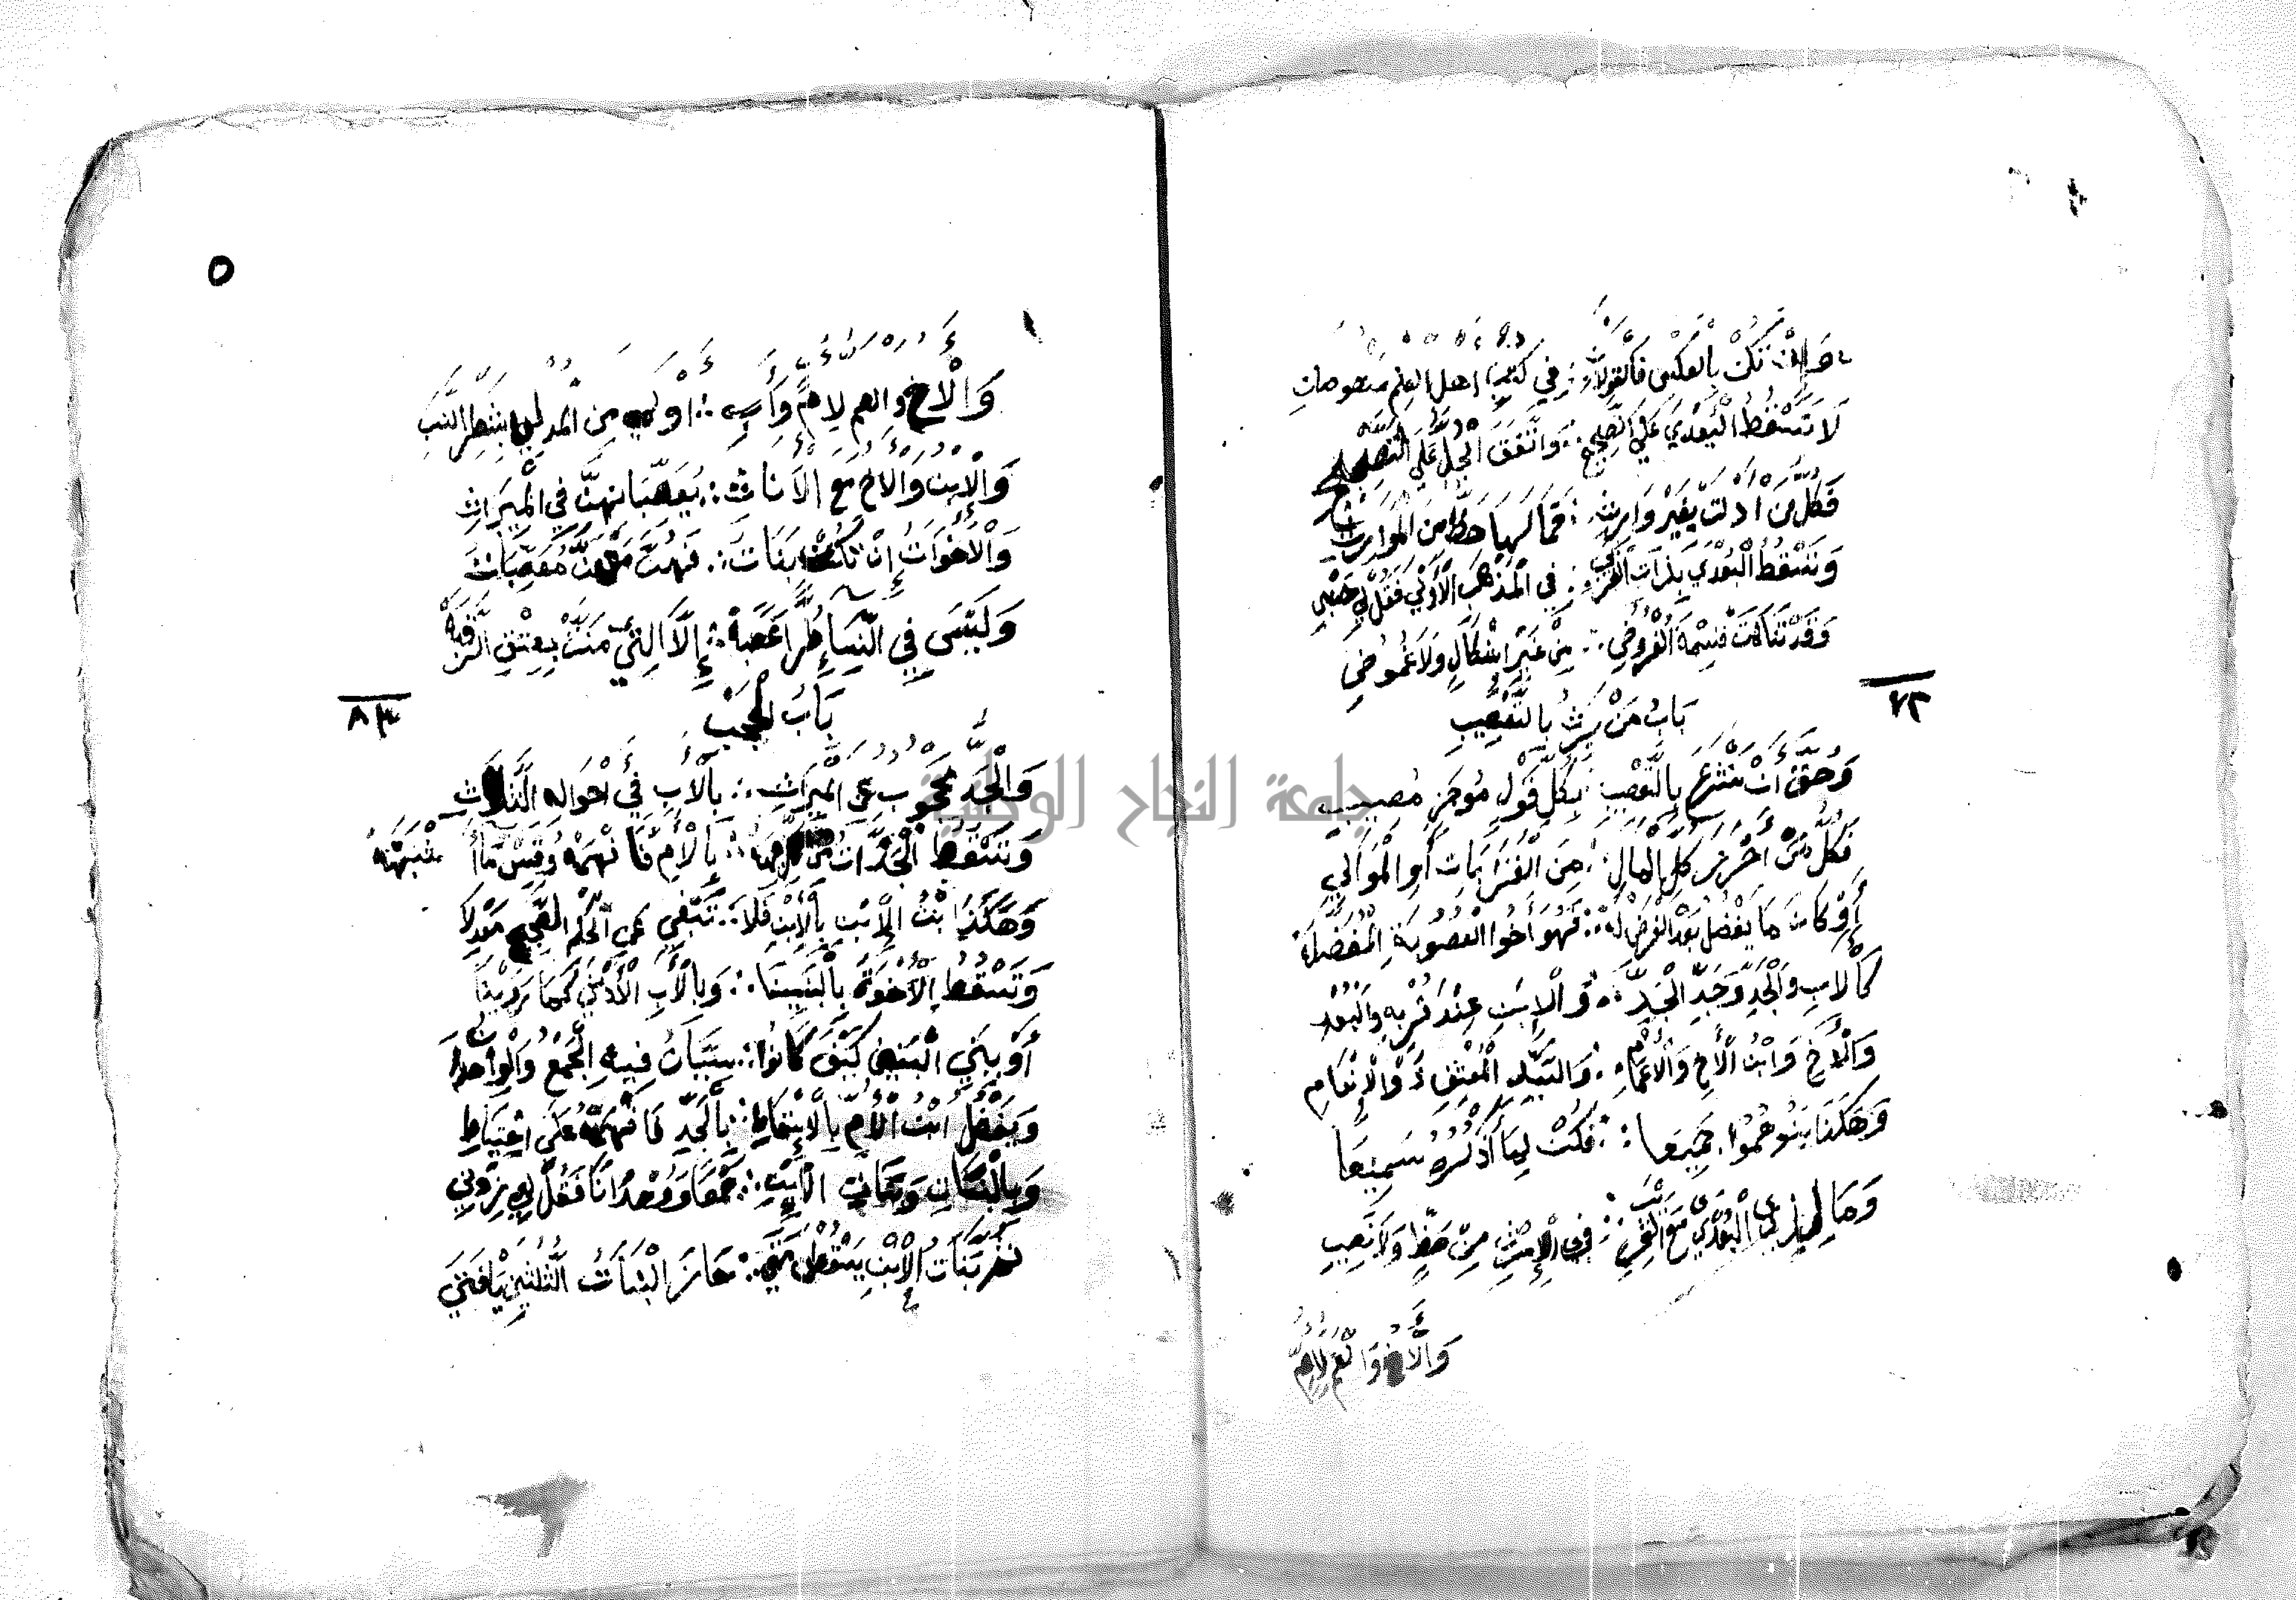 وَإِنْ تَكُنْ بِالعَكْسِ فَالقَوْلَانِ ∴ فِي كُتْبِ اهل العِلْمِ منصوصانِ
لَا تَسْقُطُ الْبُعْدَي عَلَي الصَّحِيحِ ∴ وَاتَّفَقَ الْجُلُّ عَلَي التَّصْحِيحِ
فَكُلُّ مَنْ أَدْلَتْ بِغَيْرِ وَارِثِ ∴ فَمَا لَهَا حَظٌّ مِنَ المَوَارِثِ
وَتَسْقُطُ الْبُعْدَي بِذَاتِ الْقُرْبِ ∴ فِي الْمَذْهَبِ الْأَوْلَي فَقُلْ لِي حَسْبِي
وَقَدْ تَنَاهَتْ قِسْمَةُ الْفُرُوضِ ∴ مِنْ غَيْرِ اشْكَالٍ وَلَا غُمُوضِ
بَابُ مَنْ يَرِثُ بِالتَّعْصِيبِ
٧٢
وَحُقَّ أَنْ نَشْرَعَ بِالتَّعْصِيبِ ∴ بِكُلِّ قَوْلٍ مُوجَزٍ مُصِيبِ
فَكُلُّ مَنْ أَحْرَزَ كُلَّ المَالِ ∴ مِنَ الْقَرَابَاتِ أَوِ الْمَوَالِي
أَوْ كَانَ مَا يَفْضُلُ بَعْدَ الْفَرْضِ لَهُ ∴ فَهُوَ أَخُوا الْعُصُوبَةِ الْمُفَضَّلَهْ
كَالْابِ وَالْجَدِّ وَجَدِّ الْجَدِّ ∴ وَالْإِبْنِ عِنْدَ قُرْبِهِ وَالْبُعْدِ
وَالْأَخِ وَابْنِ الْأَخِ وَالْأَعْمَامِ ∴ وَالسَّيِّدِ الْمُعْتِقِ ذُو الْإِنْعَامِ
وَهَكَذَا بَنُوهُمُوا جَمِيعَا ∴ فَكُنْ لِمَا أَذْكُرُهُ سَمِيعَا
وَمَا لِذِي الْبُعْدَي مَعَ الْقَرِيبِ ∴ فِي الْإِرْثِ مِنْ حَظٍّ وَلَا نَصِيبِ
وَالْأَخُ وَالْعَمُّ لِأُمٍّ
وَالْأَخُ والعم لِأُمٍّ وَأَبِ ∴ أَوْلَي مِنَ الْمُدْلِي بِشَطْرِ النَّسَبِ
وَالْإِبْنُ وَالْأَخُ مَعَ الْأَنَاثِ ∴ يُعَصِّبَانِهِنَّ فِي الْمِيرَاثِ
وَالْأَخَوَاتُ إِنْ تَكُنْ بَنَاتُ ∴ فَهُنَّ مَعْهُنَّ مُعَصَّبَاتُ
وَلَيْسَ فِي النِّسَاءِ طُرًّا عَصَبَهْ ∴ إِلَّا الَّتِي مَنَّتْ بِعِتْقِ الرَّقَبَهْ
بَابُ الْحَجْبِ
٨٣
وَالْجَدُّ مَحْجُوبٌ عَنِ الْمِيرَاثِ ∴ بِالْأَبِ فِي أَحْوَالِهِ الثَّلَاثِ
وَتَسْقُطُ الْجَدَّاتُ مِنْ كُلِّ جِهَهْ ∴ بِالْأُمِّ فَافْهَمْهُ وَقِسْ مَا أَشْبَهَهْ
وَهَكَذَا ابْنُ الْإِبْنِ بِالْإِبْنِ فَلَا ∴ تَبْغِ عَنِ الْحُكْمِ الصَّحِيحِ مَعْدِلَا
وَتَسْقُطُ الْإِخْوَةُ بِالْبَنِينَا ∴ وَبِالْأَبِ الْأَدْنَي كَمَا رَوَيْنَا
أَوْ بِبَنِي الْبَنِينَ كَيْفَ كَانُوا ∴ سِيَّانِ فِيهِ الْجَمْعُ وَالْوَاحِدُ
وَيَفْضُلُ ابْنُ الْأُمِّ بِالْإِسْقَاطِ ∴ بِالْجَدِّ فَافْهَمْهُ عَلَي احْتِيَاطِ
وَبِالْبَنَاتِ وَبَنَاتِ الْإِبْنِ ∴ جَمْعًا وَوُحْدَانًا فَقُلْ لِي زِدْنِي
ثُمَّ بَنَاتُ الْإِبْنِ يَسْقُطْنَ مَتَي ∴ حَازَ الْبَنَاتُ الثُّلُثَيْنِ يَا فَتَي
جامعة النجاح الوطنية